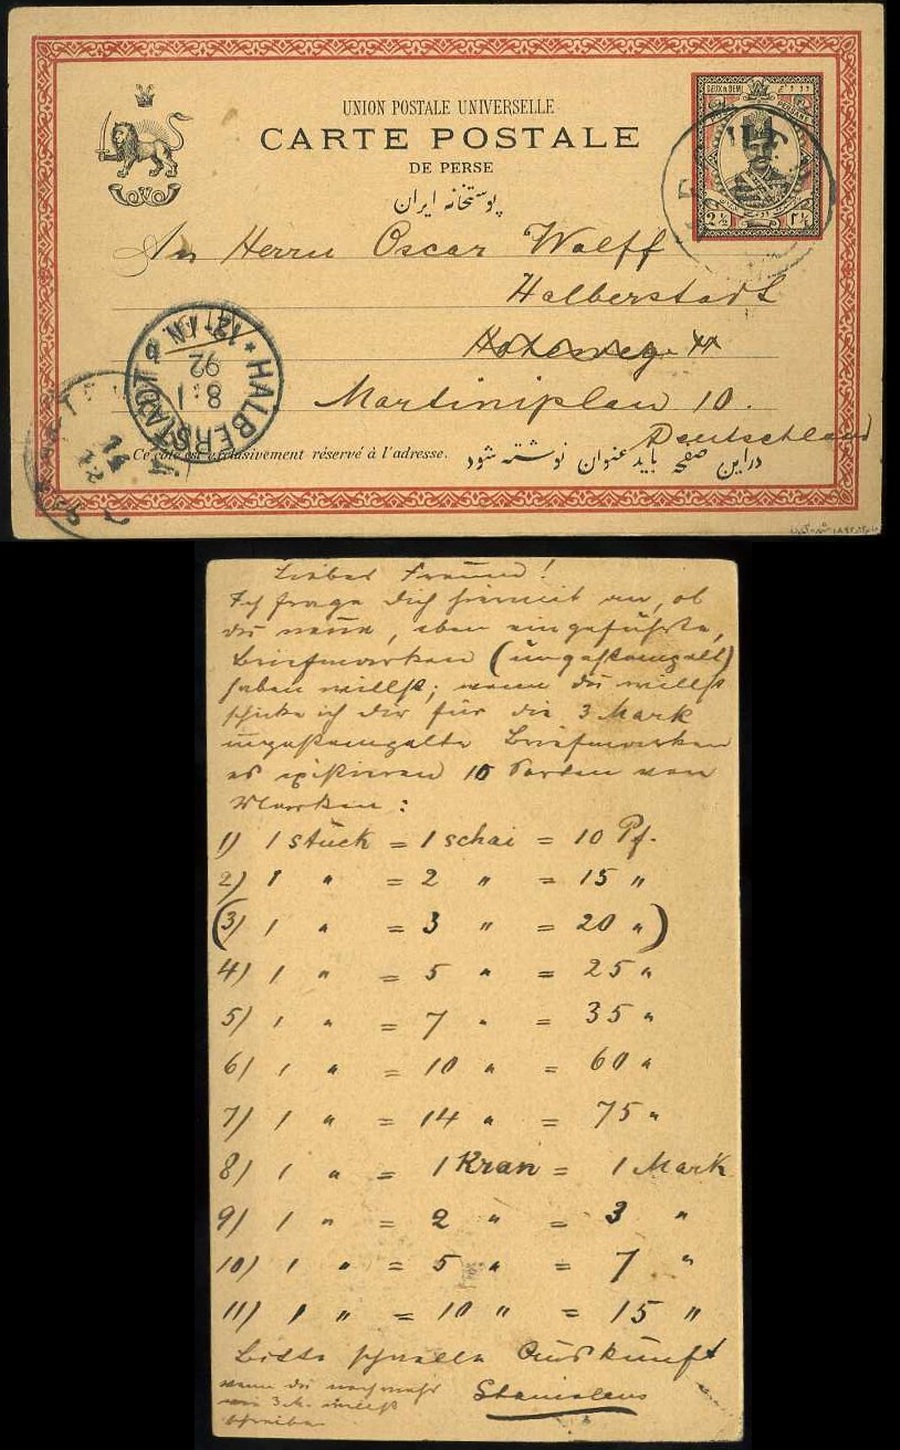 UNION POSTALE UNIVERSELLE
CARTE POSTALE
DE PERSE
پوستخانه ایران
DEUX & DEMI
2½ ۲½
An Herrn Oscar Wolff
Halberstadt
Martiniplan 10.
Deutschland
HALBERSTADT
8-1
92
Ce côté est exclusivement réservé à l'adresse.
دراین صفحه باید عنوان نوشته شود
Liebes Freund!
Ich frage Dich hiermit an, ob
du neue, eben eingeführte,
Briefmarken (ungestempelt)
haben willst; wenn du willst
schicke ich dir für die 3 Mark
ungestempelte Briefmarken
es existieren 10 Sorten von
Marken:
1) 1 stück = 1 schai = 10 Pf.
2) 1 " = 2 " = 15 "
(3) 1 " = 3 " = 20 ")
4) 1 " = 5 " = 25 "
5) 1 " = 7 " = 35 "
6) 1 " = 10 " = 60 "
7) 1 " = 14 " = 75 "
8) 1 " = 1 Kran = 1 Mark
9) 1 " = 2 " = 3 "
10) 1 " = 5 " = 7 "
11) 1 " = 10 " = 15 "
Bitte schnelle Auskunft
wenn du noch mehr
wie 3 M. willst
schreibe
Stanislaus